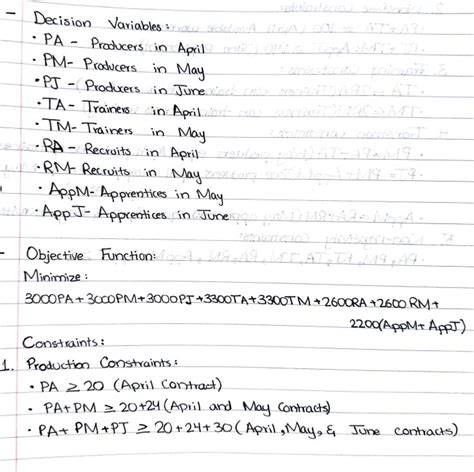 - Decision Variables:
• PA - Producers in April
• PM- Producers in May
• PJ - Producers in June
• TA - Trainers in April
• TM- Trainers in May
• RA - Recruits in April
• RM- Recruits in May
• AppM- Apprentices in May
• AppJ- Apprentices in June
- Objective Function:
Minimize:
3000PA+3000PM+3000PJ+3300TA+3300TM+2600RA+2600RM+
2200(AppM+AppJ)
Constraints:
1. Production Constraints:
• PA ≥ 20 (April Contract)
• PA+PM ≥ 20+24 (April and May Contracts)
• PA+ PM+PJ ≥ 20+24+30 (April, May, & June contracts)